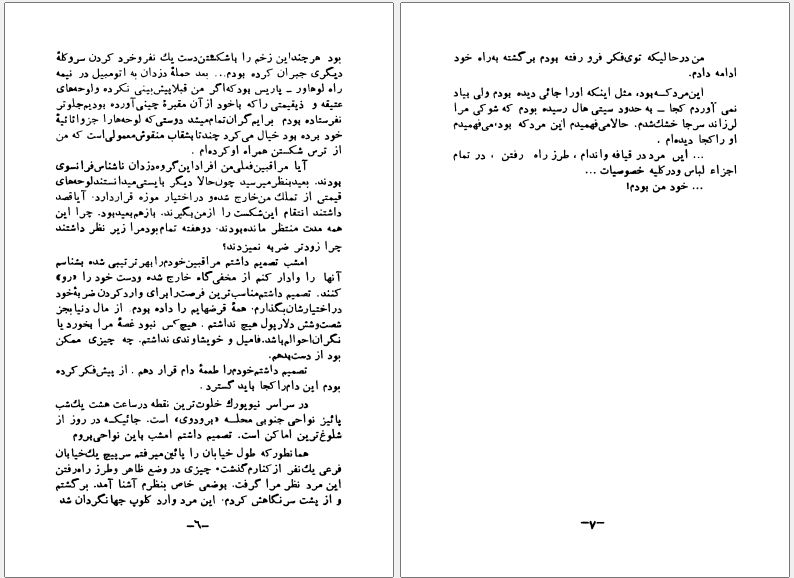 بود هرچنداین زخم را باشکستن‌دست یك نفروخرد کردن سروکلهٔ
دیگری جبران کرده بودم... بعد حملهٔ دزدان به اتومبیل در نیمه
راه لوهاور ــ پاریس بودکه‌اگر من قبلاپیش‌بینی نکرده ولوحه‌های
عتیقه و ذیقیمتی راکه باخود ازآن مقبرهٔ چینی‌آورده بودیم‌جلوتر
نفرستاده بودم برایم‌گران‌تمام‌میشد دوستی‌که لوحه‌هارا جزو اثاثیهٔ
خود برده بود خیال می‌کرد چندتابشقاب منقوش‌معمولی‌است که من
از ترس شکستن همراه اوکرده‌ام .
آیا مراقبین‌فعلی‌من افراداین‌گروه‌دزدان ناشناس‌فرانسوی
بودند. بعیدبنظرمیرسید چون‌حالا دیگر بایستی‌میدانستندلوحه‌های
قیمتی از تملك من‌خارج شده‌و دراختیار موزه قراردارد. آیاقصد
داشتند انتقام این‌شکست را ازمن‌بگیرند. بازهم‌بعیدبود. چرا این
همه مدت منتظر مانده‌بودند. دوهفته تمام‌بودمرا زیر نظر داشتند
چرا زودتر ضربه نمیزدند؟
امشب تصمیم داشتم مراقبین‌خودم‌رابهر‌ترتیبی شده بشناسم
آنها را وادار کنم از مخفی‌گاه خارج شده ودست خود را «رو»
کنند. تصمیم داشتم‌مناسب‌ترین فرصت‌رابرای واردکردن ضربهٔ‌خود
دراختیارشان‌بگذارم. همهٔ قرضهایم را داده بودم. از مال دنیا‌بجز
شصت‌وشش دلارپول هیچ نداشتم . هیچ‌کس نبود غصهٔ مرا بخورد یا
نگران‌احوالم‌باشد.فامیل و خویشاوندی نداشتم. چه چیزی ممکن
بود از دست‌بدهم.
تصمیم داشتم‌خودم‌را طعمهٔ دام قرار دهم . از پیش‌فکرکرده
بودم این دام‌راکجا باید گسترد .
در سراسر نیویورك خلوت‌ترین نقطه درساعت هشت یك‌شب
پائیز نواحی جنوبی محلــه «برودوی» است. جائیکــه در روز از
شلوغ‌ترین اماکن است. تصمیم داشتم امشب باین نواحی‌بروم
همانطورکه طول خیابان را پائین‌میرفتم سرپیچ یك‌خیابان
فرعی یك‌نفر ازکنارم‌گذشت. چیزی در وضع ظاهر وطرز راه‌رفتن
این مرد نظر مرا گرفت. بوضعی خاص بنظرم آشنا آمد. برگشتم
و از پشت سرنگاهش کردم. این مرد وارد کلوپ جهانگردان شد
ــ٦ــ
من درحالیکه توی‌فکر فرو رفته بودم برگشته به‌راه خود
ادامه دادم.
این‌مردکــه‌بود، مثل اینکه اورا جائی دیده بودم ولی بیاد
نمی آوردم کجا ــ به حدود سیتی هال رسیده بودم که شوکی مرا
لرزاند سرجا خشك‌شدم. حالامی‌فهمیدم این مردکه بود،می‌فهمیدم
او راکجا دیده‌ام .
... این مرد در قیافه واندام ، طرز راه رفتن ، در تمام
اجزاء لباس ودرکلیه خصوصیات ...
... خود من بودم!
ــ۷ــ